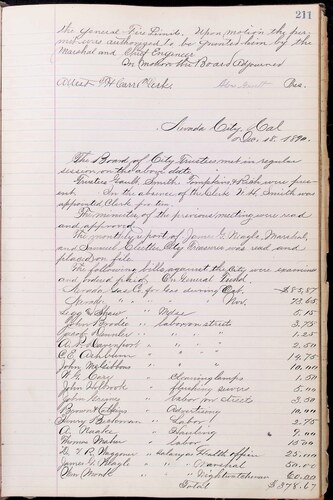 211
the General Fire Limits. Upon motion the per-
mit was authorized to be granted him by the
Marshal and Chief Engineer.
On motion the Board Adjourned
Attest T. H. Carr Clerk Pres.
Nevada City, Cal
Dec. 18, 1890.
The Board of City Trustees met in regular
session on the above date.
Trustees Gault, Smith, Tompkins & Rich were pre-
sent. In the absence of the Clerk Smith was
appointed Clerk pro tem.
The minutes of the previous meeting were read
and approved.
The monthly report of James G. Neagle, Marshal,
and Samuel Clutter City Treasurer was read and
placed on file
The following bills against the City were examined
and ordered paid. On General Fund.
Nevada Gas Co for Gas during Oct. $83.87
Nevada " " " " Nov. 73.65
Legg & Shaw " Mdse 5.15
John Brodie " Labor on streets 3.75
" " " 1.25
A. R. Davenport " " " " 2.50
C. E. Ashburn " " " " 14.75
John McGibbons " " " " 10.00
" Cleaning lamps 1.50
" flushing sewers 5.00
John " labor on streets 3.50
Brown & Calkins " Advertising 10.00
Henry " Labor 2.75
" 9.00
Thomas Mohn " Labor 15.00
Dr. T. R. Waggoner " salary as Health officer 25.00
James G. Neagle " " " Marshal 50.00
Wm Monk " " " Nightwatchman 60.00
Total $378.67